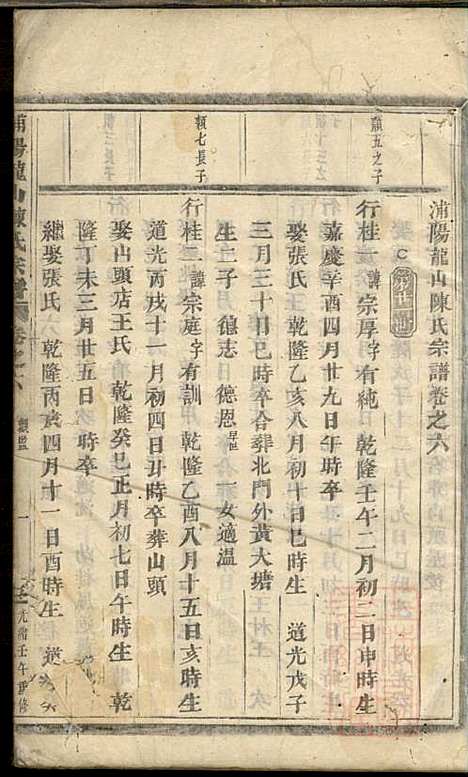 浦陽龍山陳氏宗譜卷之六
賴五之子
行桂一諱宗厚字有純 乾隆壬午二月初二日申時生
嘉慶辛酉四月廿九日午時卒
娶張氏 乾隆乙亥八月初十日巳時生 道光戊子
三月三十日巳時卒合葬北門外黃大塘
生二子 德志 德恩 一女適溫
賴七長子
行桂二諱宗庭字有訓 乾隆乙酉八月十五日亥時生
道光丙戌十一月初四日丑時卒葬山頭
娶山頭店王氏 乾隆癸巳正月初七日午時生 乾
隆丁未三月廿五日 時卒
繼娶張氏 乾隆丙亥四月十一日酉時生 道
浦陽龍山陳氏宗譜 卷之六 一 光緒壬午重修